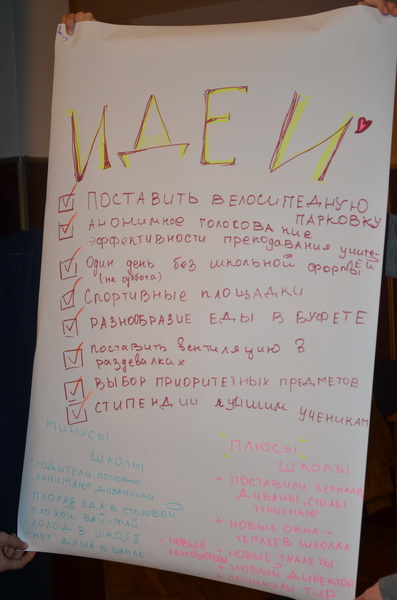 ИДЕИ
ПОСТАВИТЬ ВЕЛОСИПЕДНУЮ
ПАРКОВКУ
АНОНИМНОЕ ГОЛОСОВАНИЕ
ЭФФЕКТИВНОСТИ ПРЕПОДАВАНИЯ УЧИТЕ-
ЛЕЙ
ОДИН ДЕНЬ БЕЗ ШКОЛЬНОЙ ФОРМЫ
(не суббота)
СПОРТИВНЫЕ ПЛОЩАДКИ
РАЗНООБРАЗИЕ ЕДЫ В БУФЕТЕ
ПОСТАВИТЬ ВЕНТИЛЯЦИЮ В
РАЗДЕВАЛКАХ
ВЫБОР ПРИОРИТЕТНЫХ ПРЕДМЕТОВ
СТИПЕНДИИ ЛУЧШИМ УЧЕНИКАМ
МИНУСЫ
ШКОЛЫ
- РОДИТЕЛИ ПОСТОЯННО
ЗАНИМАЮТ ДИВАНЧИКИ
- ПЛОХАЯ ЕДА В СТОЛОВОЙ
- ПЛОХОЙ ВАЙ-ФАЙ
- ХОЛОД В ШКОЛЕ
- НЕТ ДУША В ШКОЛЕ
ПЛЮСЫ
ШКОЛЫ
+ ПОСТАВИЛИ ЗЕРКАЛА,
ДИВАНЫ, СТОЛЫ
ТЕННИСНЫЕ
+ НОВЫЕ ОКНА -
ТЕПЛЕЕ В ШКОЛАХ
+ НОВЫЕ ТУАЛЕТЫ
+ НОВЫЙ ДИРЕКТОР
+ ПОЧИНИЛИ ТИР
+ НОВЫЕ
КОМПЬЮТЕРЫ